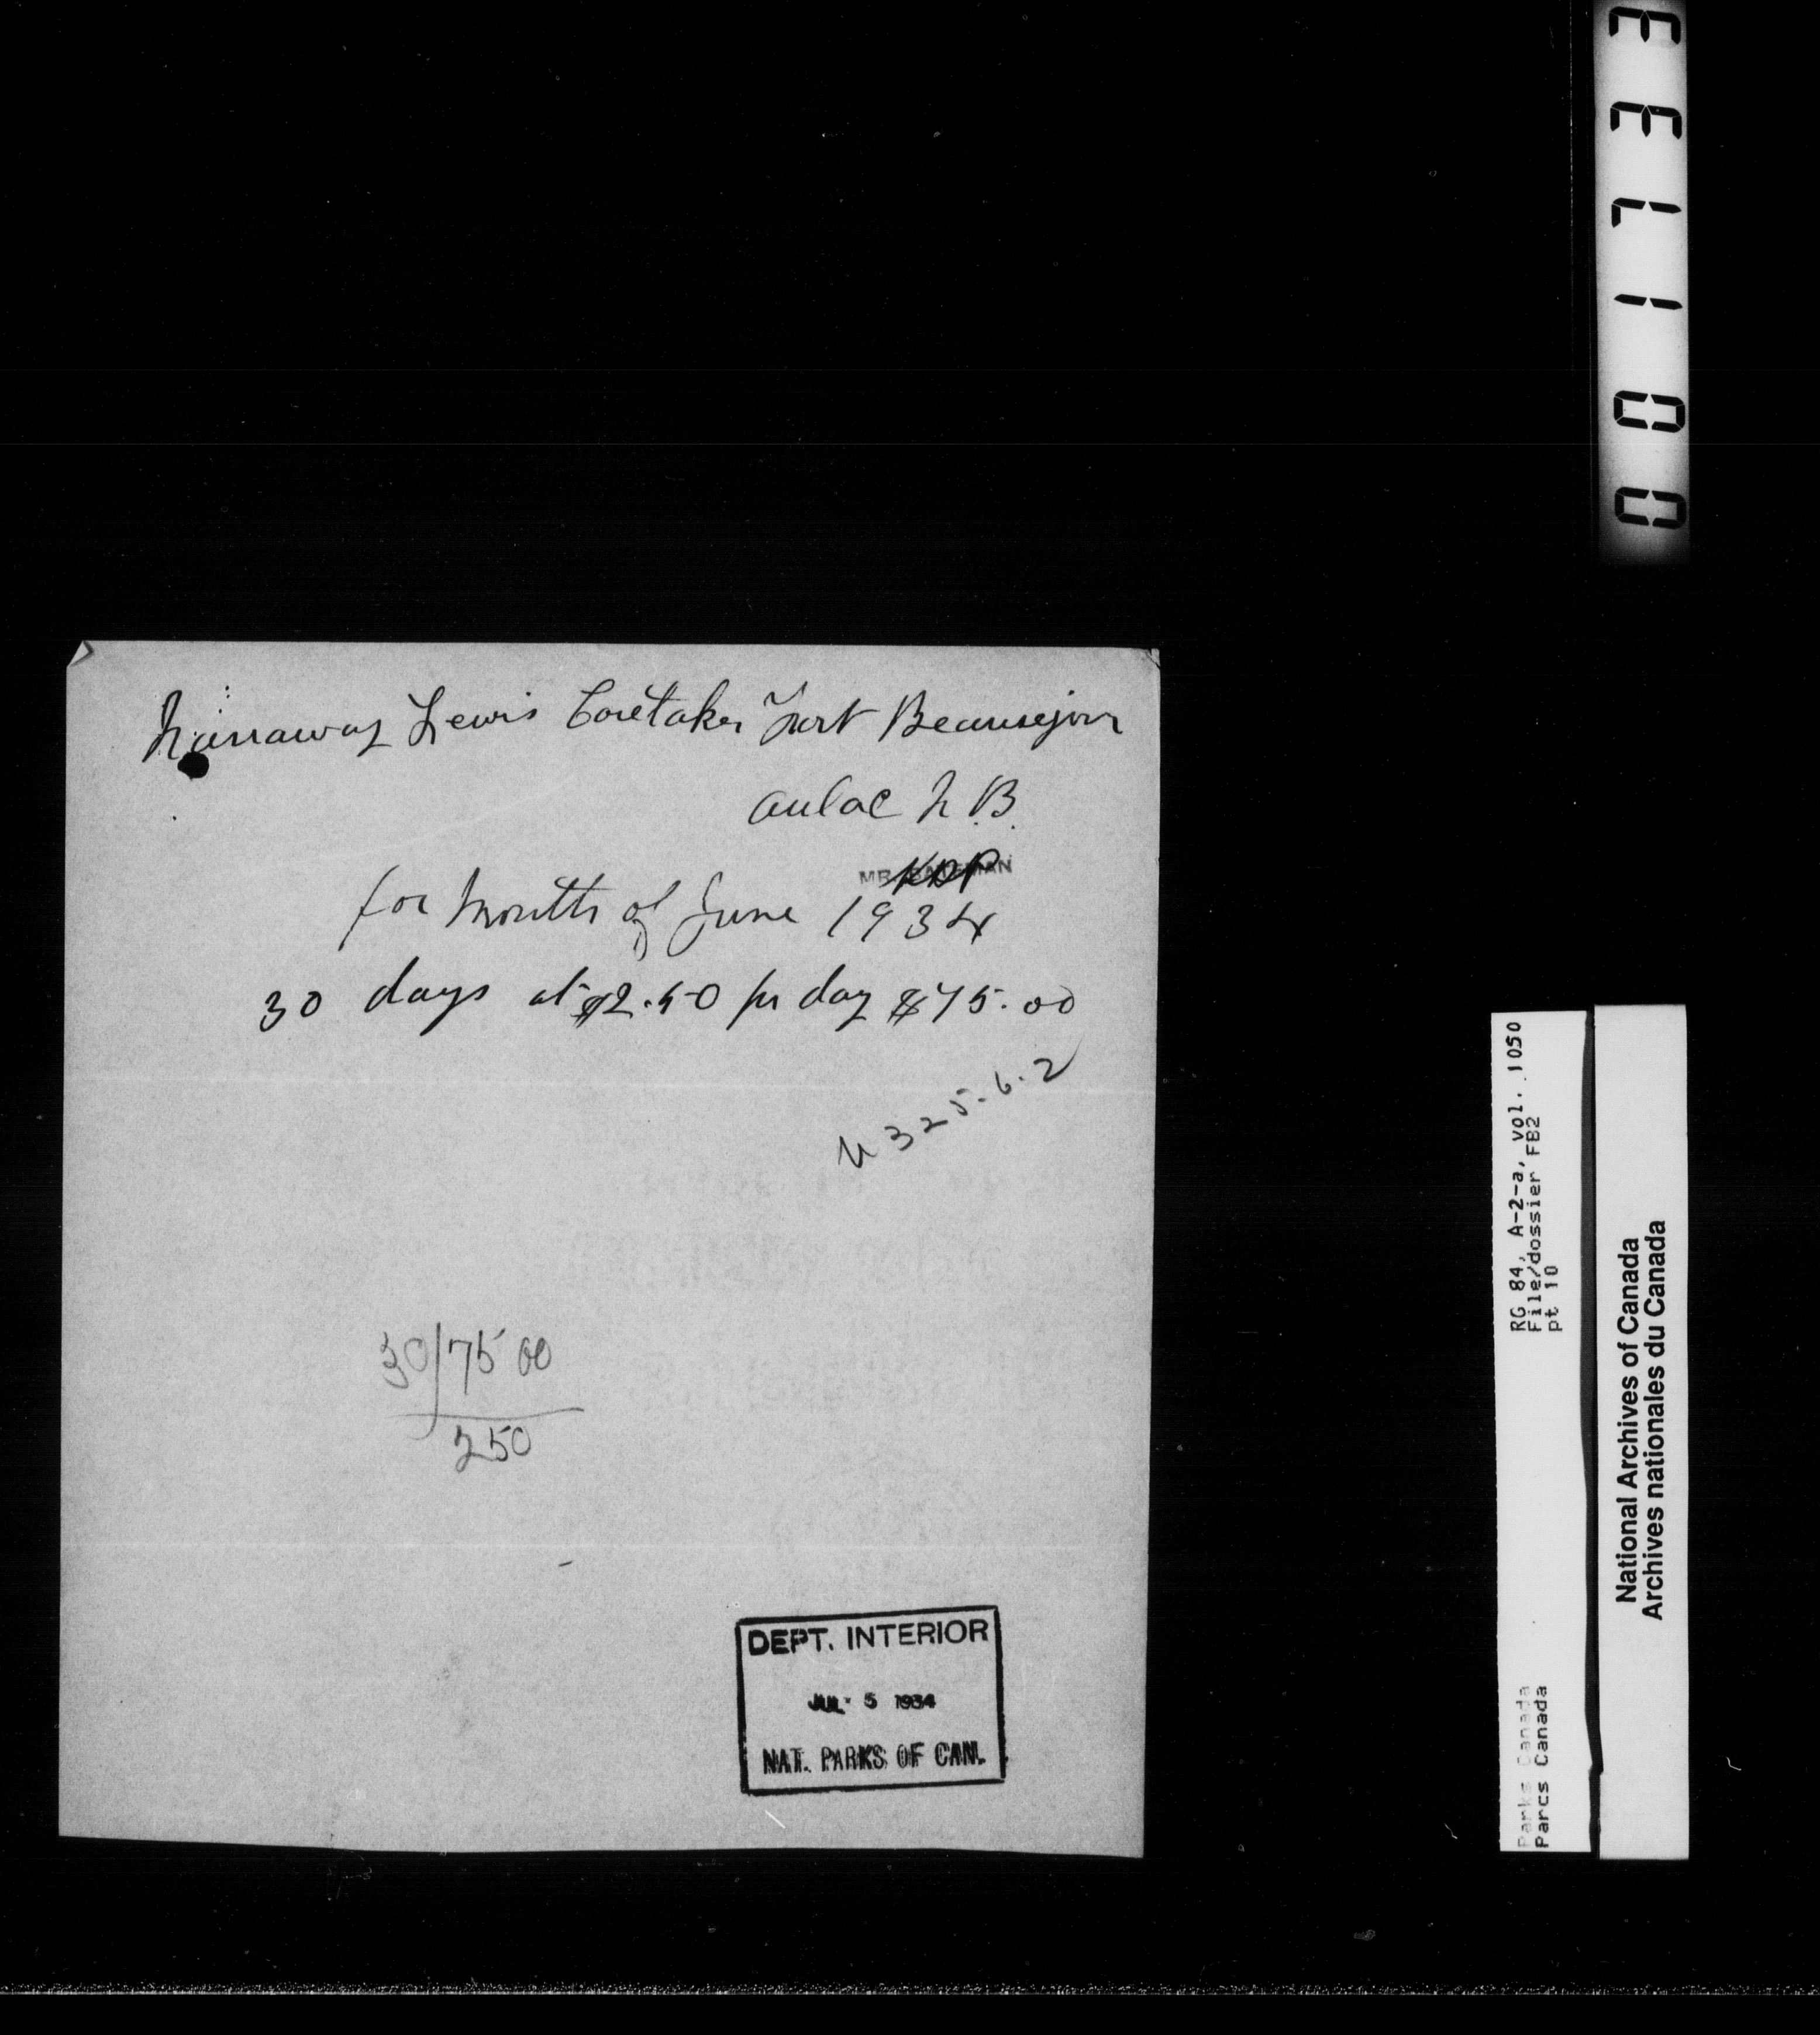 Narraway Lewis Caretaker Fort Beausejour
Aulac N.B.
MR.
KDP
for Month of June 1934
30 days at $2.50 pr day $75.00
U 325-6-2
30/75 00
250
DEPT. INTERIOR
JUL 5 1934
NAT. PARKS OF CAN.
RG 84, A-2-a, vol. 1050
File/dossier FB2
pt 10
Parks Canada
Parcs Canada
National Archives of Canada
Archives nationales du Canada
001733